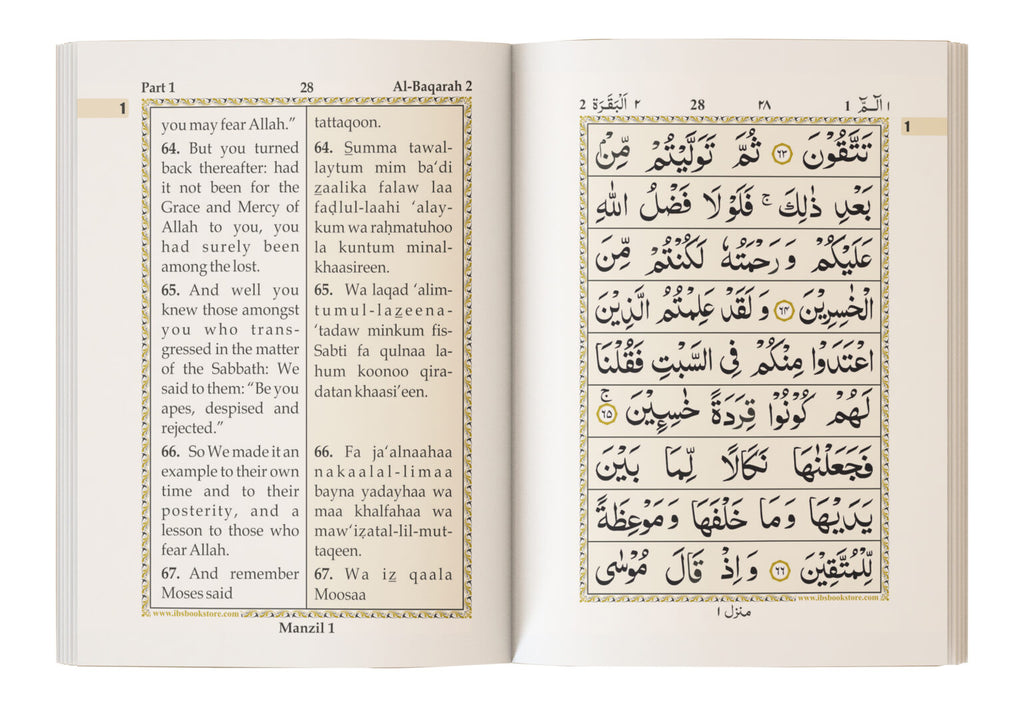 Part 1 28 Al-Baqarah 2
1
you may fear Allah.”
64. But you turned
back thereafter: had
it not been for the
Grace and Mercy of
Allah to you, you
had surely been
among the lost.
65. And well you
knew those amongst
you who trans-
gressed in the matter
of the Sabbath: We
said to them: “Be you
apes, despised and
rejected.”
66. So We made it an
example to their own
time and to their
posterity, and a
lesson to those who
fear Allah.
67. And remember
Moses said
tattaqoon.
64. S̲umma tawal-
laytum mim ba‘di
z̲aalika falaw laa
faḍlul-laahi ‘alay-
kum wa raḥmatuhoo
la kuntum minal-
khaasireen.
65. Wa laqad ‘alim-
tumul-laz̲eena-
‘tadaw minkum fis-
Sabti fa qulnaa la-
hum koonoo qira-
datan khaasi’een.
66. Fa ja‘alnaahaa
nakaalal-limaa
bayna yadayhaa wa
maa khalfahaa wa
maw‘iẓatal-lil-mut-
taqeen.
67. Wa iz̲ qaala
Moosaa
www.ibsbookstore.com
Manzil 1
2 اَلْبَقَرَة ٢ 28 ٢٨ 1 الٓـمّٓ ١
1
تَتَّقُوْنَ ٦٣ ثُمَّ تَوَلَّيْتُمْ مِّنْۢ
بَعْدِ ذٰلِكَ ۚ فَلَوْلَا فَضْلُ اللّٰهِ
عَلَيْكُمْ وَرَحْمَتُهٗ لَكُنْتُمْ مِّنَ
الْخٰسِرِيْنَ ٦٤ وَلَقَدْ عَلِمْتُمُ الَّذِيْنَ
اعْتَدَوْا مِنْكُمْ فِى السَّبْتِ فَقُلْنَا
لَهُمْ كُوْنُوْا قِرَدَةً خٰسِـِٕيْنَ ۚ ٦٥
فَجَعَلْنٰهَا نَكَالًا لِّمَا بَيْنَ
يَدَيْهَا وَمَا خَلْفَهَا وَمَوْعِظَةً
لِّلْمُتَّقِيْنَ ٦٦ وَاِذْ قَالَ مُوْسٰى
www.ibsbookstore.com
منزل ١